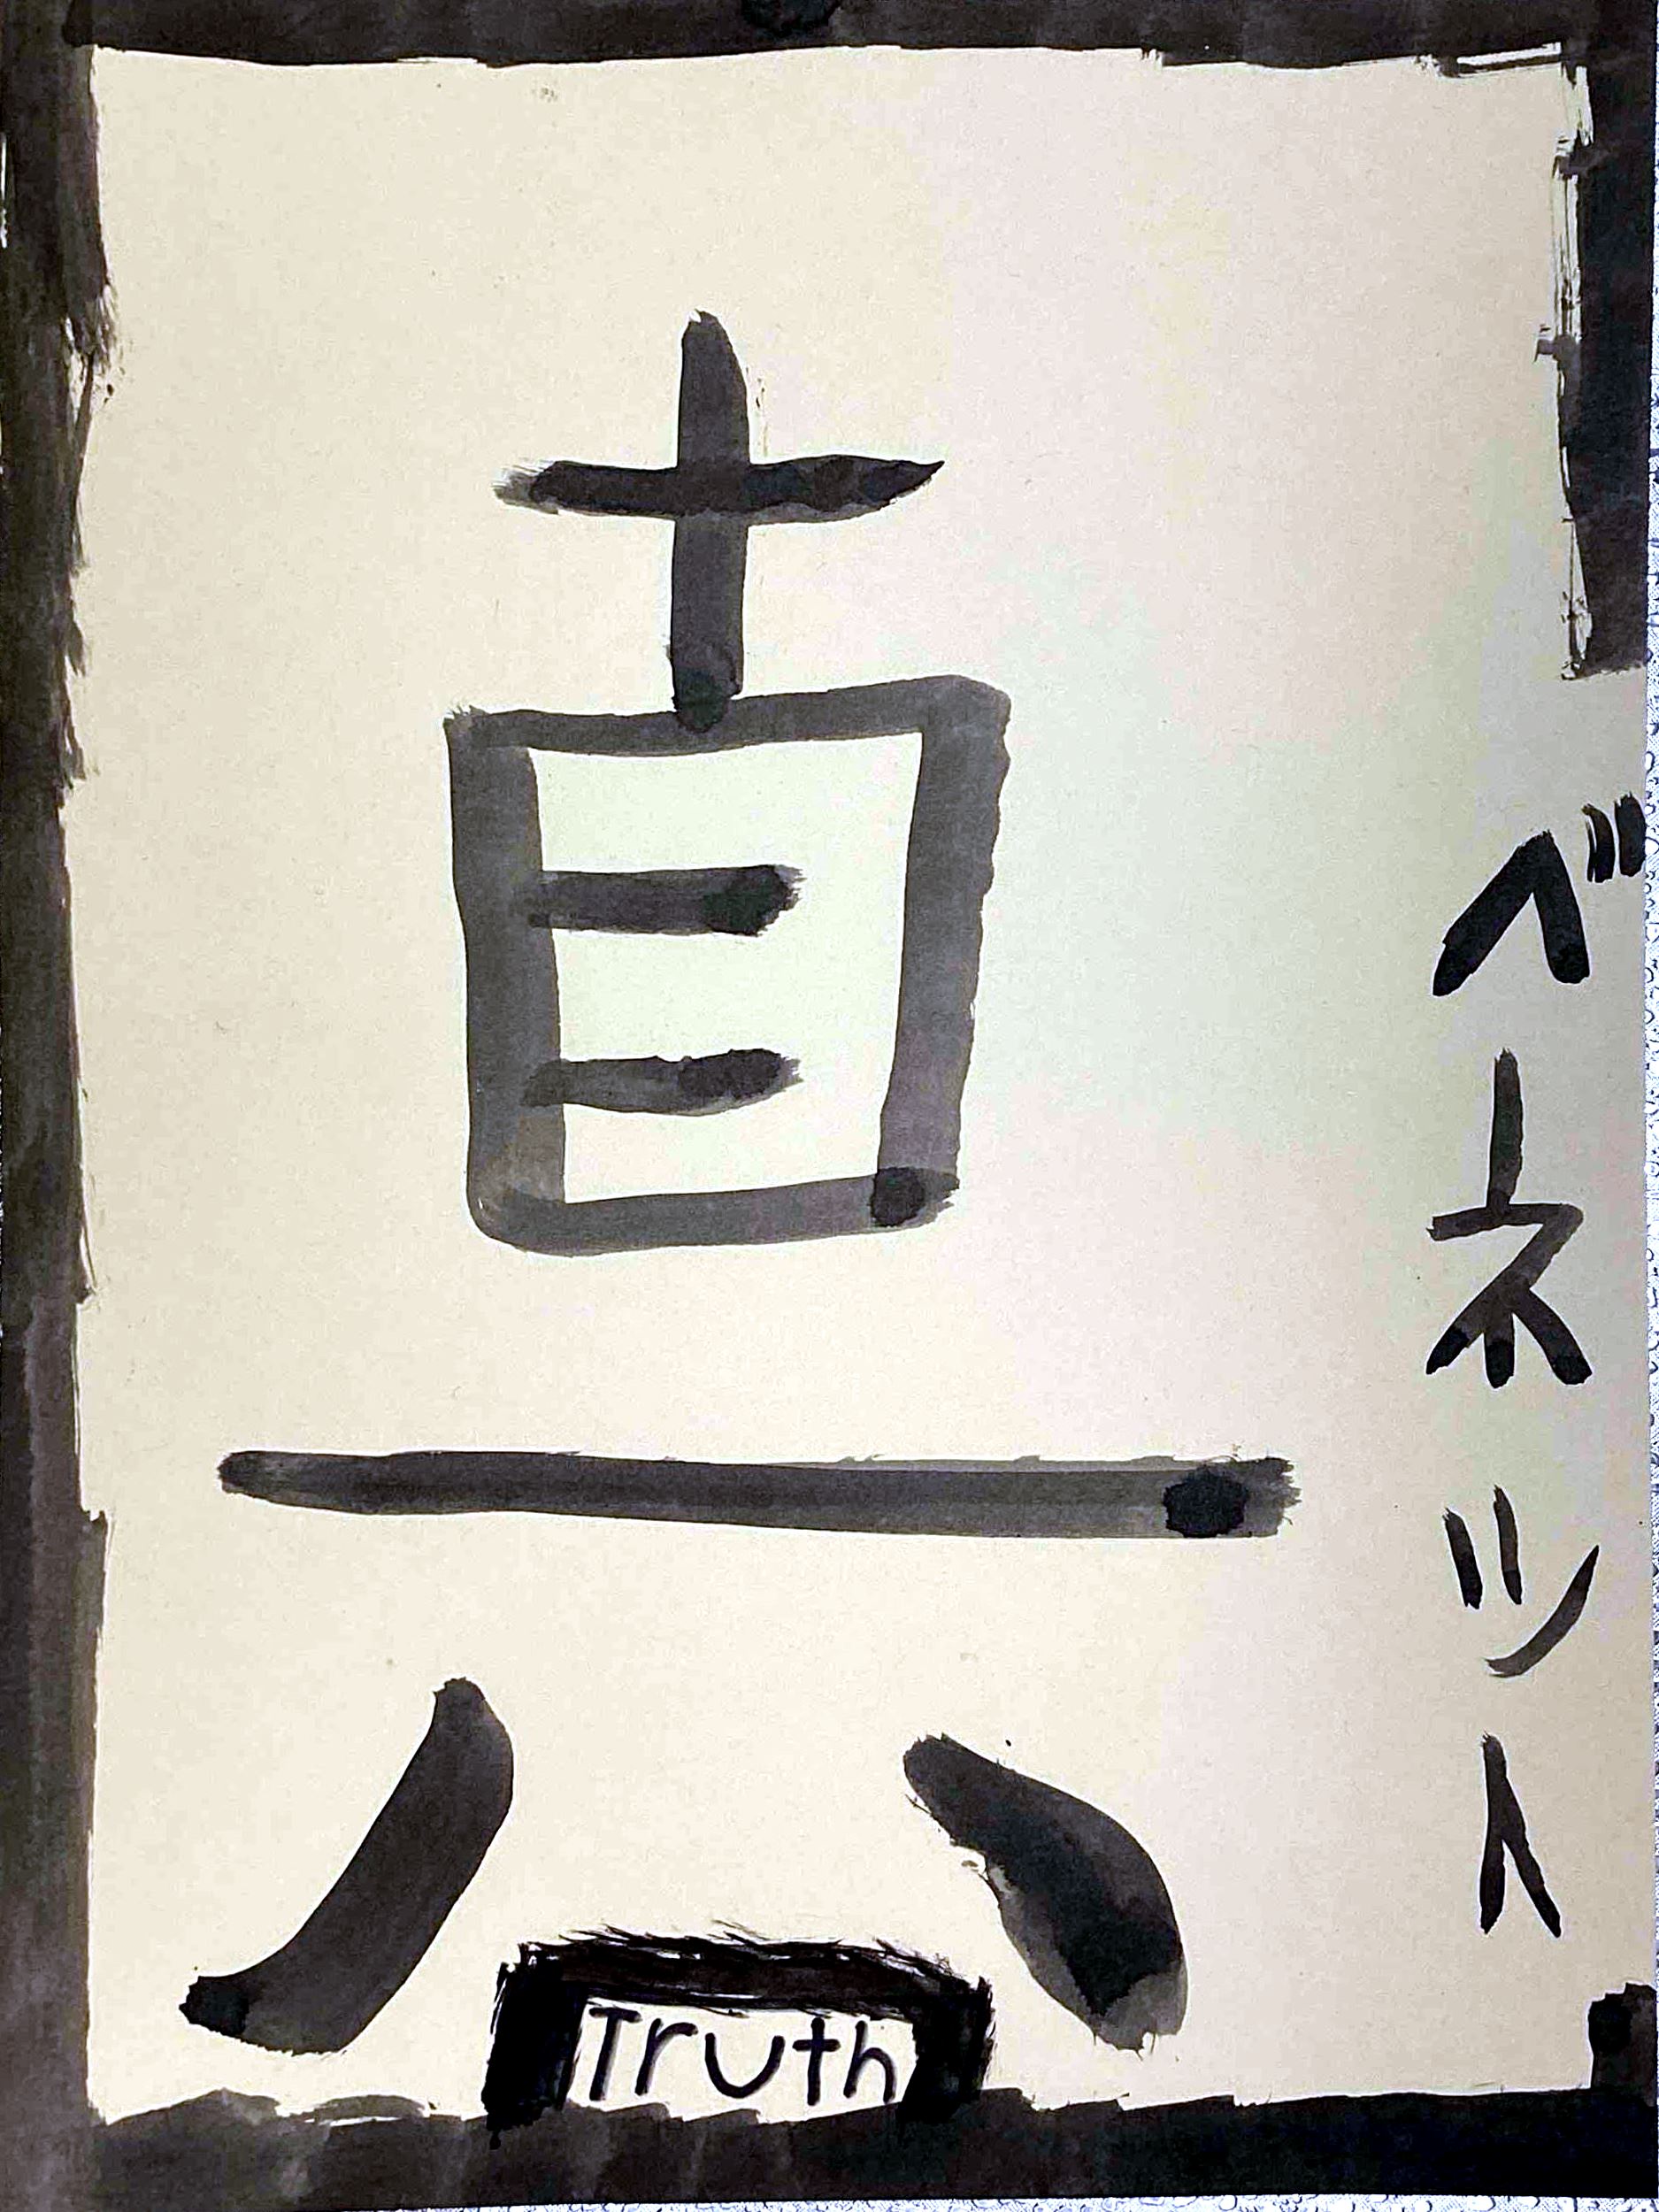 真
ベネット
Truth